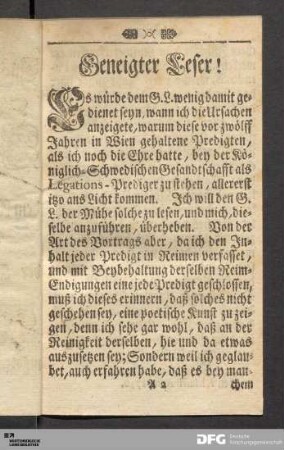 Geneigter Leser!
Es würde dem G. L. wenig damit ge-
dienet seyn, wann ich die Ursachen
anzeigete, warum diese vor zwölff
Jahren in Wien gehaltene Predigten,
als ich noch die Ehre hatte, bey der Kö-
niglich-Schwedischen Gesandtschafft als
Legations-Prediger zu stehen, allererst
itzo ans Licht kommen. Ich will den G.
L. der Mühe solche zu lesen, und mich, die-
selbe anzuführen, überheben. Von der
Art des Vortrags aber, da ich den Jn-
halt jeder Predigt in Reimen verfasset,
und mit Beybehaltung derselben Reim-
Endigungen eine jede Predigt geschlossen,
muß ich dieses erinnern, daß solches nicht
geschehen sey, eine poetische Kunst zu zei-
gen, denn ich sehe gar wohl, daß an der
Reinigkeit derselben, hie und da etwas
auszusetzen sey; Sondern weil ich geglau-
bet, auch erfahren habe, daß es bey man-
A 2 chem
DFG Deutsche
Forschungsgemeinschaft